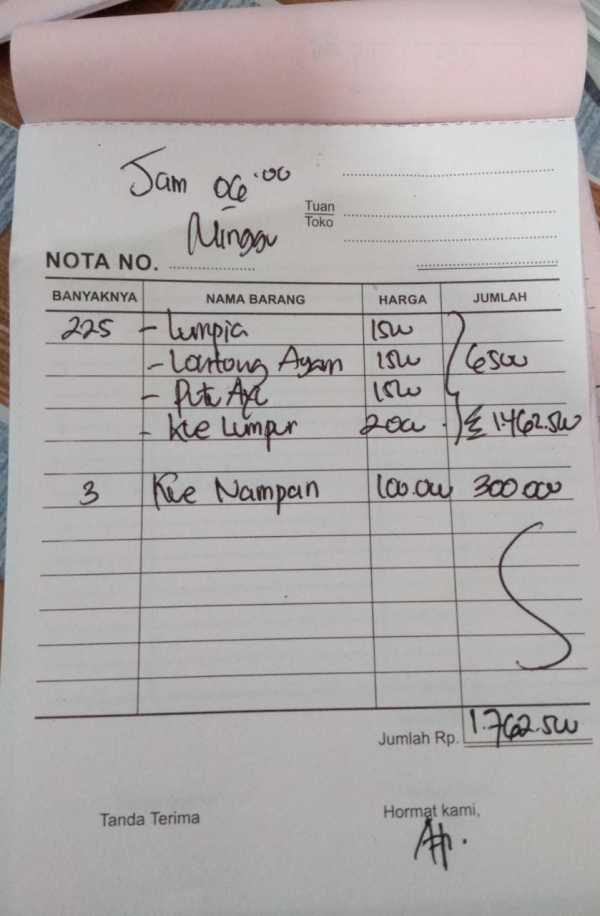 Jam 06.00
Minggu
Tuan
Toko
NOTA NO.
BANYAKNYA NAMA BARANG HARGA JUMLAH
225 - Lumpia 1500
- Lontong Ayam 1500 6500
- Putu Ayu 1500
- kue lumpur 2000 1.462.500
3 Kue Nampan 100.000 300.000
Jumlah Rp. 1.762.500
Tanda Terima Hormat kami,